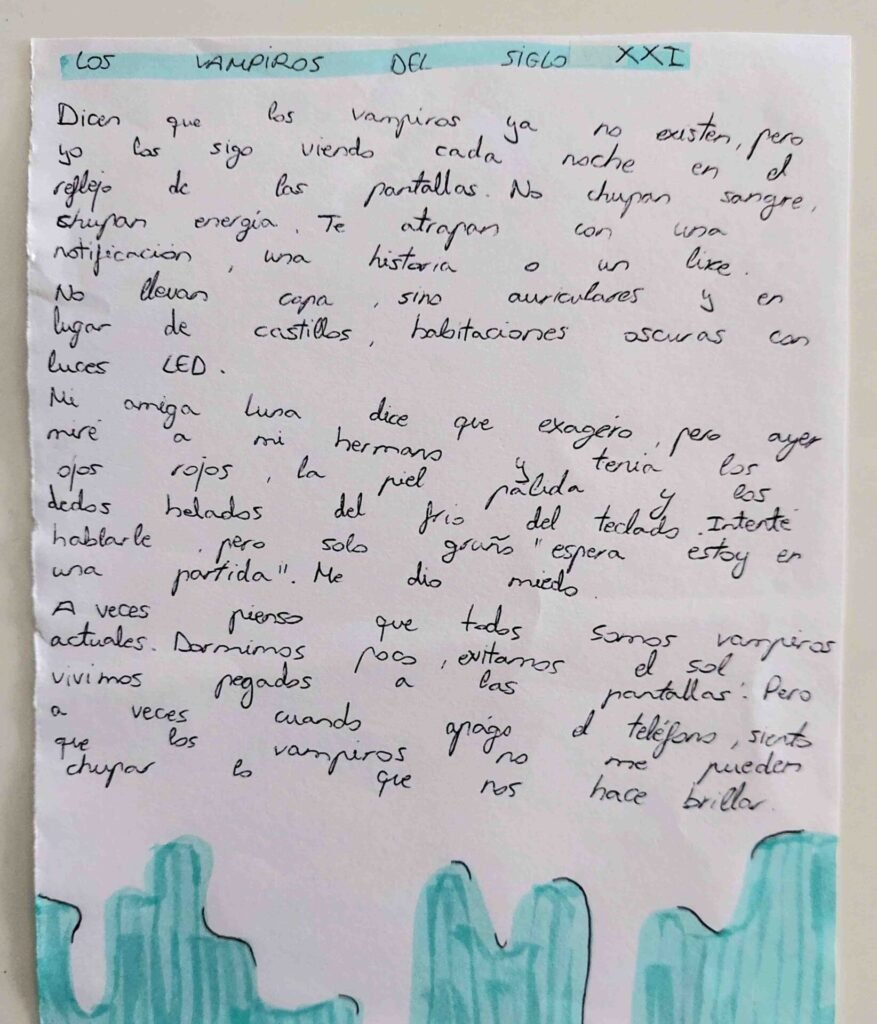 LOS VAMPIROS DEL SIGLO XXI
Dicen que los vampiros ya no existen, pero
yo los sigo viendo cada noche en el
reflejo de las pantallas. No chupan sangre,
chupan energía. Te atrapan con una
notificación, una historia o un like.
No llevan capa, sino auriculares y en
lugar de castillos, habitaciones oscuras con
luces LED.
Mi amiga Luna dice que exagéro, pero ayer
miré a mi hermano y tenia los
ojos rojos, la piel pálida y los
dedos helados del frio del teclado. Intenté
hablarle, pero solo gruño "espera estoy en
una partida". Me dio miedo.
A veces pienso que todos somos vampiros
actuales. Dormimos poco, evitamos el sol
vivimos pegados a las pantallas. Pero
a veces cuando apágo el teléfono, siento
que los vampiros no me pueden
chupar lo que nos hace brillar.